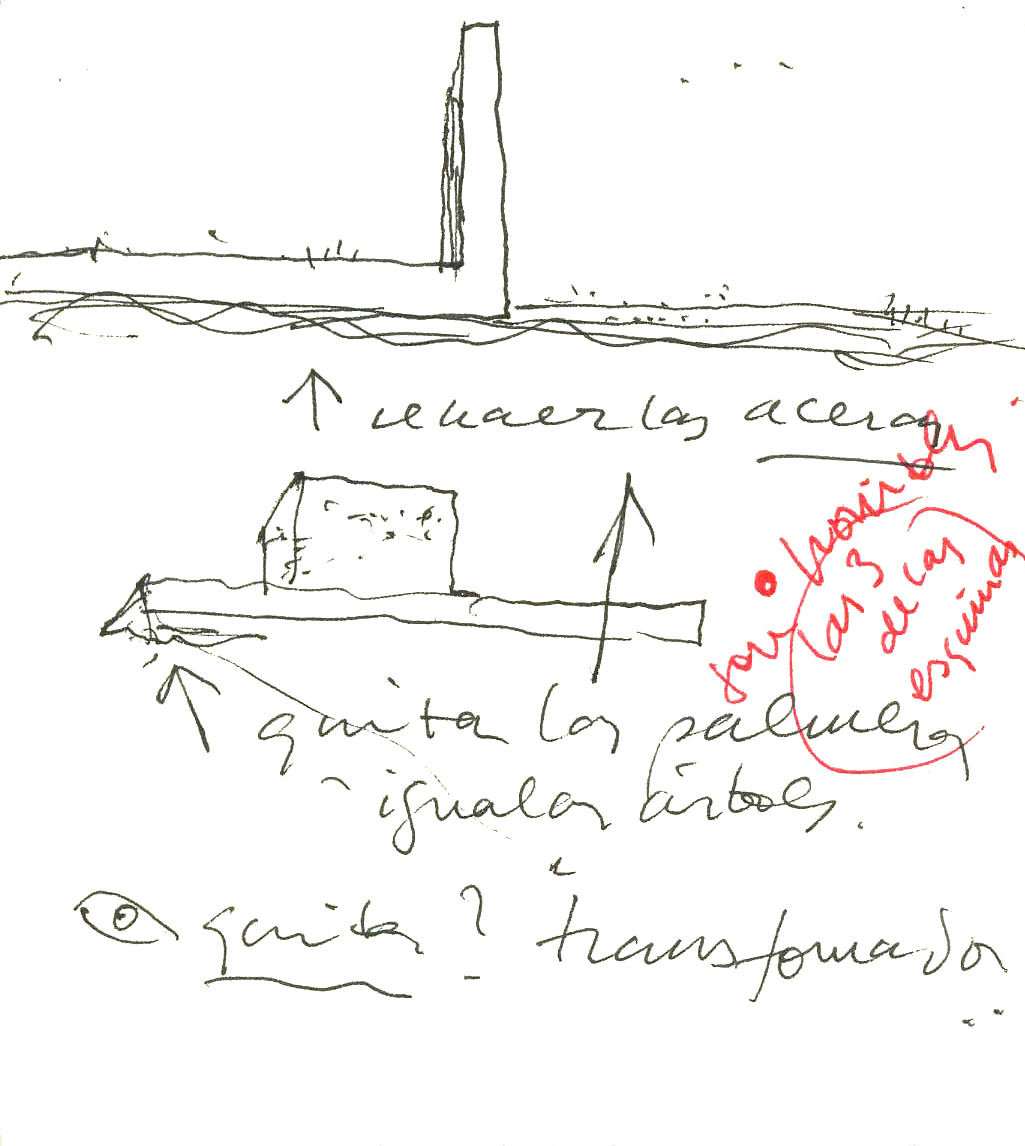 las aceras
quitar las palmeras
igualar árboles.
quitar? transformador
las 3
de las
esquinas